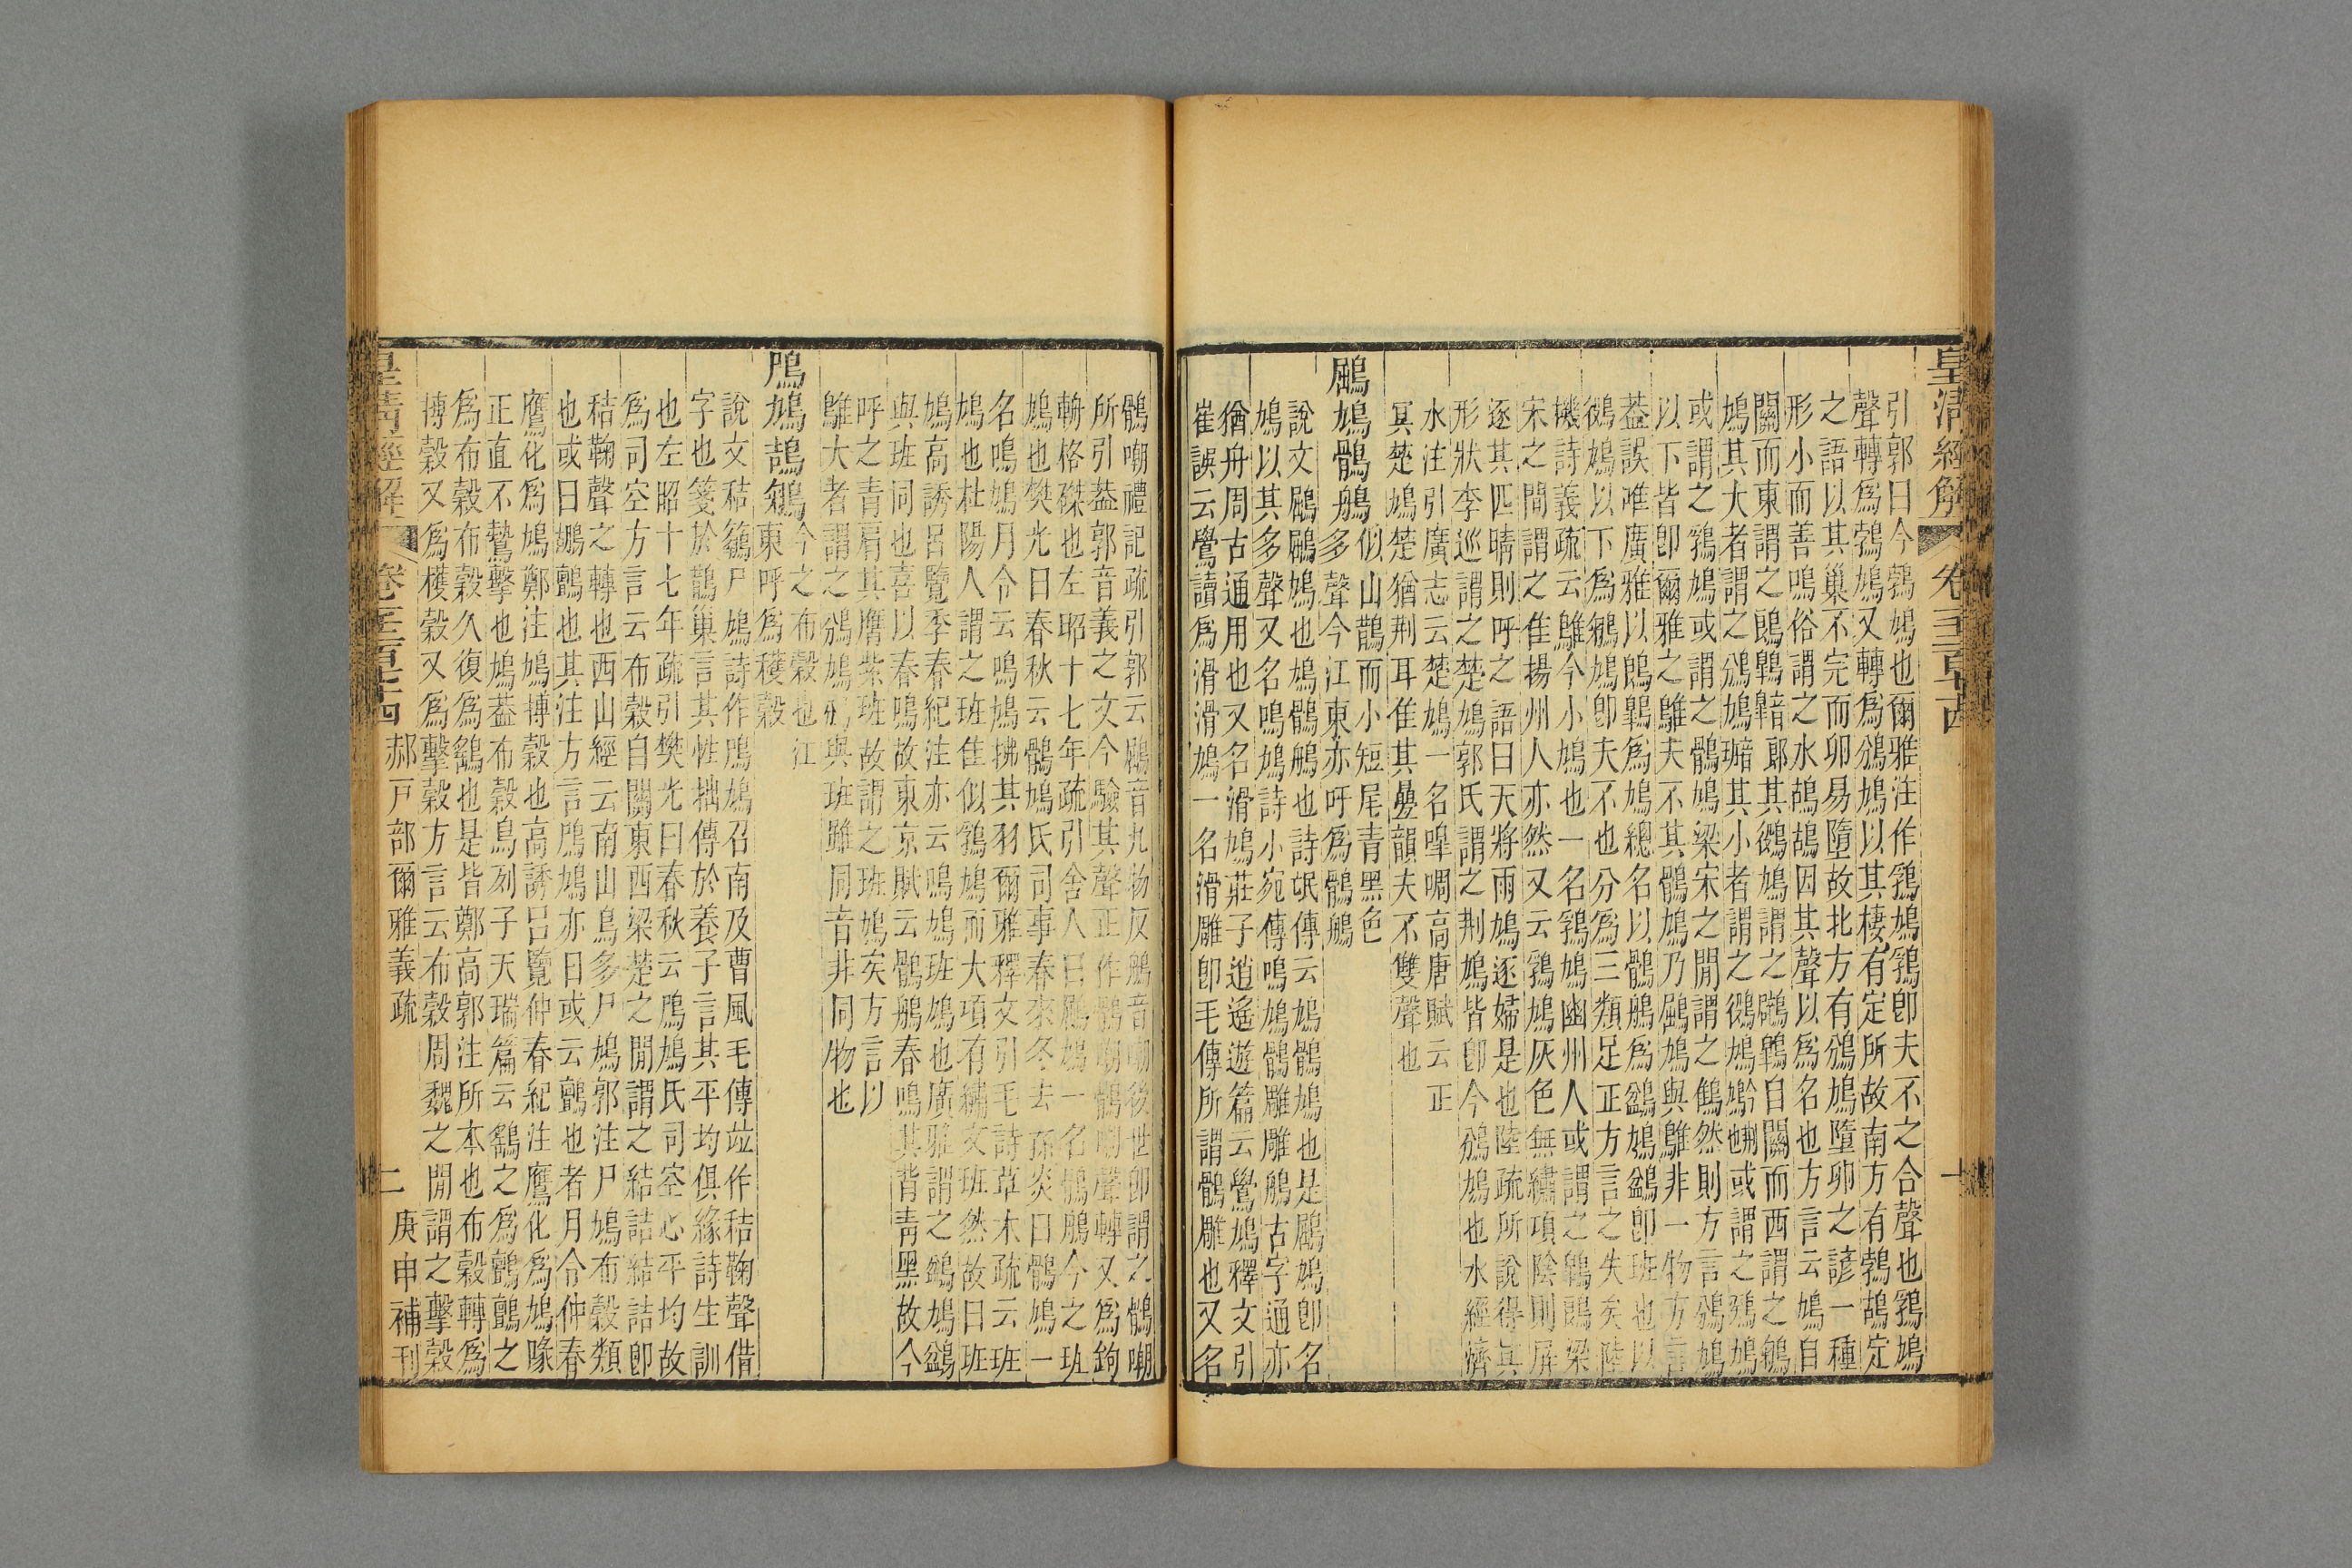 皇清經解
卷
引郭曰今鵓鳩也爾雅注作鶏鳩鶏卽夫不之合聲也鶏鳩
聲轉爲鵓鳩又轉爲鵓鳩以其棲有定所故南方有鵓鴣定
之語以其巢不完而卵易墮故北方有鵓鳩墮卵之諺一種
形小而善鳴俗謂之水鴣鴣因其聲以爲名也方言云鳩自
關而東謂之鶝鶔其鵖鳩謂之鸊鶔自關而西謂之鵴
鳩其大者謂之鳻鳩其小者謂之鵖鳩或謂之鵻鳩
或謂之鶏鳩或謂之鶻鳩梁宋之閒謂之鷦然則方言鳻鳩
以下皆卽爾雅之鵻夫不其鶻鳩乃鶌鳩與鵻非一物方言
葢誤唯廣雅以鶝鶔爲鳩總名以鶻鵃爲
鳩以下爲鳩卽夫不也分爲三類足正方言之失矣陸
璣詩義疏云鵻今小鳩也一名鶏鳩幽州人或謂之鶝鶔梁
宋之閒謂之隹揚州人亦然又云鶏鳩灰色無繡項陰則屏
逐其匹晴則呼之語曰天將雨鳩逐婦是也陸疏所說得其
形狀李巡謂之楚鳩郭氏謂之荆鳩皆卽今鵓鳩也水經濟
水注引廣志云楚鳩一名嘷啁高唐賦云正
冥楚鳩楚猶荆耳隹其疊韻夫不雙聲也
鶌鳩鶻鵃似山鵲而小短尾青黑色
多聲今江東亦呼爲鶻鵃
說文鶌鶌鳩也鳩鶻鵃也詩氓傳云鳩鶻鳩也是鶌鳩卽名
鳩以其多聲又名鳴鳩詩小宛傳鳴鳩鶻雕雕鵃古字通亦
猶舟周古通用也又名滑鳩莊子逍遙遊篇云鷽鳩釋文引
崔譔云鷽讀爲滑滑鳩一名滑雕卽毛傳所謂鶻雕也又名
鶻嘲禮記疏引郭云鶌音九物反鵃音嘲後世卽謂之鶻嘲
所引葢郭音義之文今驗其聲正作鶻嘲鶻嘲聲轉又爲鉤
輈格磔也左昭十七年疏引舍人曰鶌鳩一名鶻鵃今之班
鳩也樊光曰春秋云鶻鳩氏司事春來冬去孫炎曰鶻鳩一
名鳴鳩月令云鳴鳩拂其羽爾雅釋文引毛詩草木疏云班
鳩也杜陽人謂之班隹似鶏鳩而大項有繡文班然故曰班
鳩高誘呂覽季春紀注亦云鳴鳩班鳩也廣雅謂之鳩
與班同也喜以春鳴故東京賦云鶻鵃春鳴其背青黑故今
呼之青肩其膺紫班故謂之班鳩矣方言以
鵻大者謂之鳻鳩鳻與班雖同音非同物也
鳲鳩鴶鵴今之布穀也江
東呼爲穫穀
說文秸鵴尸鳩詩作鳲鳩召南及曹風毛傳竝作秸鞠聲借
字也箋於鵲巢言其性拙傳於養子言其平均俱緣詩生訓
也左昭十七年疏引樊光曰春秋云鳲鳩氏司空心平均故
爲司空方言云布穀自關東西梁楚之閒謂之結誥結誥卽
秸鞠聲之轉也西山經云南山鳥多尸鳩郭注尸鳩布穀類
也或曰鶘鸇也其注方言鳲鳩亦曰或云鸇也者月令仲春
鷹化爲鳩鄭注鳩搏穀也高誘呂覽仲春紀注鷹化爲鳩喙
正直不鷙擊也鳩葢布穀鳥列子天瑞篇云鷂之爲鸇鸇之
爲布穀布穀久復爲鷂也是皆鄭高郭注所本也布穀轉爲
搏穀又爲穫穀又爲擊穀方言云布穀周魏之閒謂之擊穀
皇清經解
郝戸部爾雅義疏
二
庚申補刊